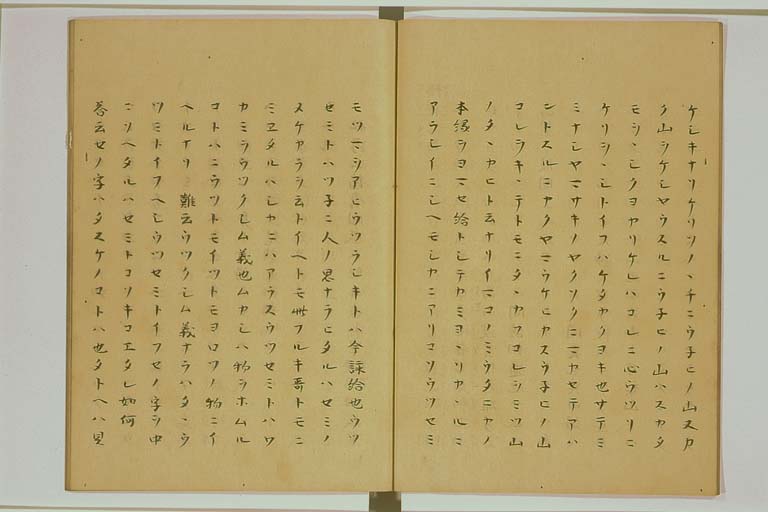 ケシキナリケリソノヽチニウ子ヒノ山スカ
タ山シケシヤウスルニウ子ヒノ山ハスカタ
モシヽシクヨカリケレハコレニ心ウツリニ
ケリシヽシトイフハケタカクヨキ也サテミ
ミナシヤマサキノヤクソクニマカセテアハ
ントスルニカクヤマウケヒカスウ子ヒノ山
コレヲキヽテトモニタヽカフコレヲミツ山
ノタヽカヒト云ナリイマコノミウタニカノ
本縁ヲヨマセ給トシテカミヨヽリカヽルニ
アラシイニシヘモシカニアリコソウツセミ
モツマヲアヒウツラシキトハ今詠給也ウツ
セミトハツ子ニ人ノ思ナラヒタルハセミノ
スケカラヲ云トイヘトモ此フルキ哥トモニ
ミエタルハシカニハアラスウツセミトハワ
カミヲウツクシム義也ムカシハ物ヲホムル
コトハニウツトモイツトモヨロツノ物ニイ
ヘルナリ 難云ウツクシム義ナラハタヽウ
ツミトイフヘシウツセミトイフセノ字ヲ中
ニソヘタルハセミトコソキコエタレ如何
答云セノ字ハタスケノコトハ也タトヘハ見